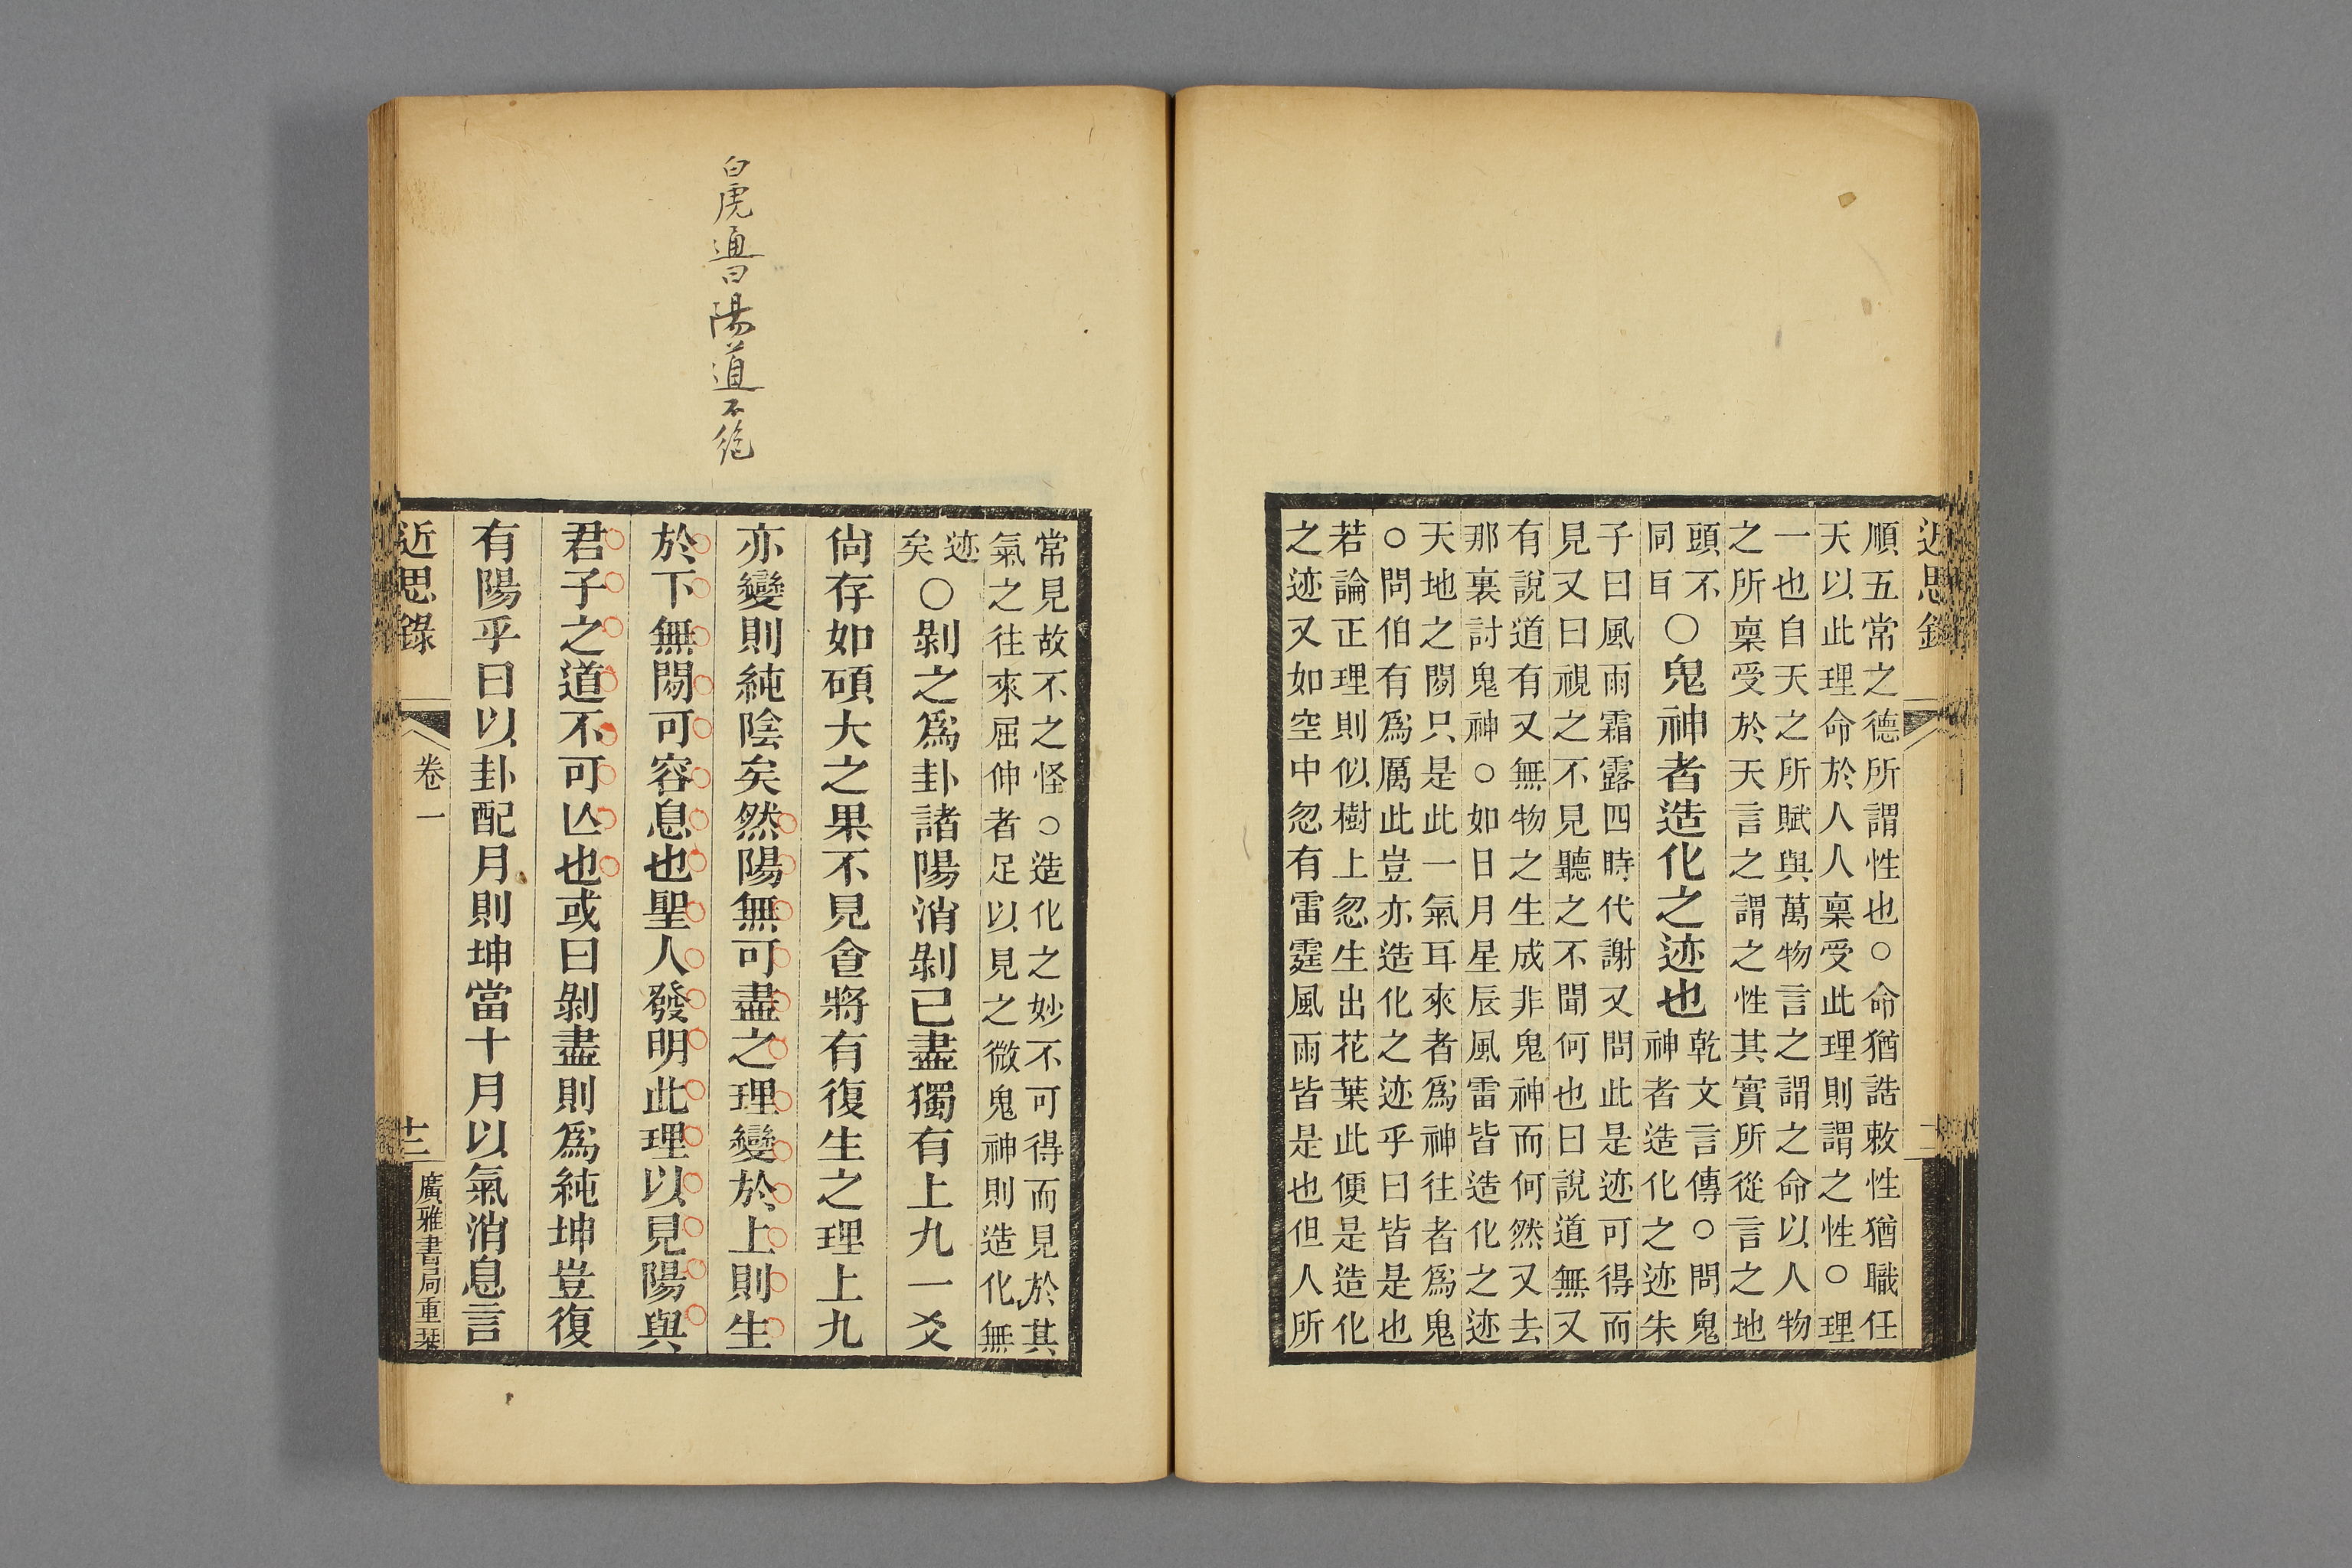 近思錄
順五常之德所謂性也○命猶誥敕性猶職任
天以此理命於人人稟受此理則謂之性○理
一也自天之所賦與萬物言之謂之命以人物
之所稟受於天言之謂之性其實所從言之地
頭不
同耳
○鬼神者造化之迹也
乾文言傳○問鬼
神者造化之迹朱
子曰風雨霜露四時代謝又問此是迹可得而
見又曰視之不見聽之不聞何也曰說道無又
有說道有又無物之生成非鬼神而何然又去
那裏討鬼神○如日月星辰風雷皆造化之迹
天地之閒只是此一氣耳來者爲神往者爲鬼
○問伯有爲厲此豈亦造化之迹乎曰皆是也
若論正理則似樹上忽生出花葉此便是造化
之迹又如空中忽有雷霆風雨皆是也但人所
白虎通曰陽道不絕
常見故不之怪○造化之妙不可得而見於其
氣之往來屈伸者足以見之微鬼神則造化無
迹
矣
○剝之爲卦諸陽消剝已盡獨有上九一爻
尙存如碩大之果不見食將有復生之理上九
亦變則純陰矣然陽無可盡之理變於上則生
於下無閒可容息也聖人發明此理以見陽與
君子之道不可亾也或曰剝盡則爲純坤豈復
有陽乎曰以卦配月則坤當十月以氣消息言
近思錄
卷一
十二
廣雅書局重栞